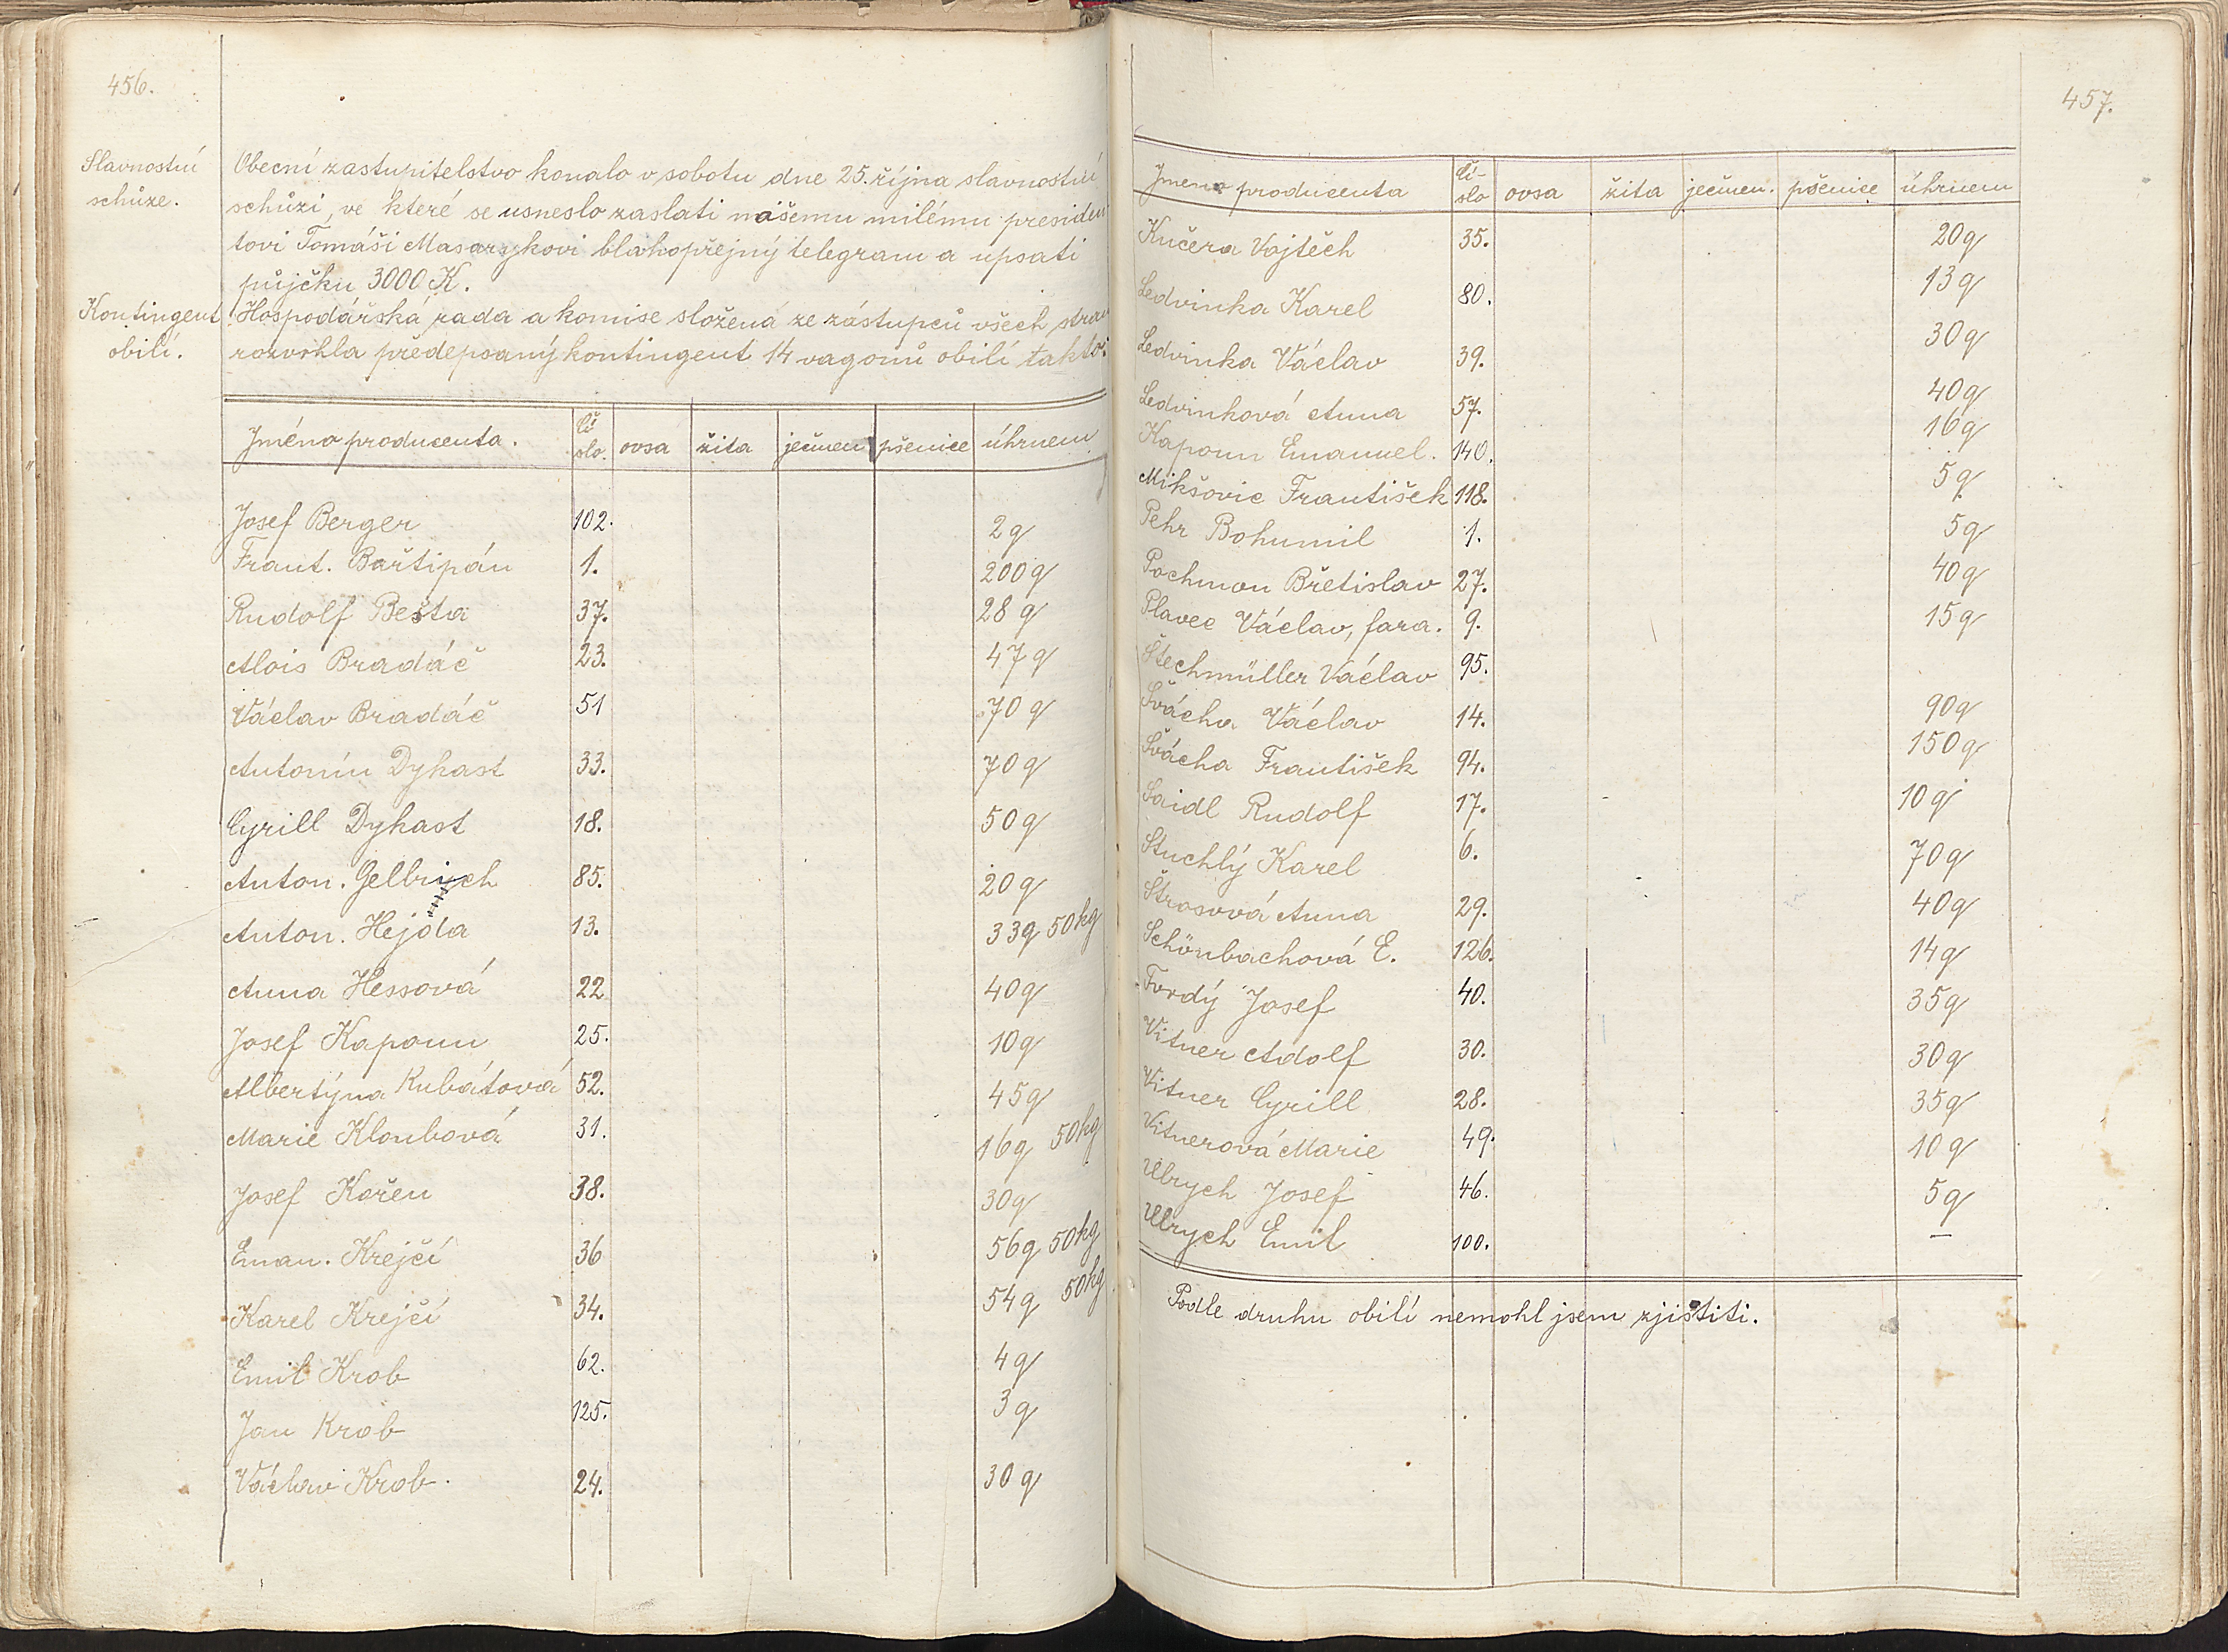 456.
Slavnostní
schůze.
Obecní zastupitelstvo konalo v sobotu dne 25. října slavnostní
schůzi, ve které se usneslo zaslati našemu milému presiden
tovi Tomáši Masarykovi blahopřejný telegram a upsati
půjčku 3000 K.
Kontingent
obilí.
Hospodářská rada a komise složená ze zástupců všech stran
rozvrhla předepsaný kontingent 14 vagonů obilí takto:
Jméno producenta. čí-slo. ovsa žita ječmen pšenice úhrnem
Josef Berger 102. 2q
Frant. Bařtipán 1. 200q
Rudolf Bešta 37. 28 q
Alois Bradáč 23. 47q
Václav Bradáč 51 70 q
Antonín Dykast 33. 70q
Cyrill Dykast 18. 50q
Anton. Gelbrich 85. 20q
Anton. Hejda 13. 33q 50kg
Anna Hessová 22 40q
Josef Kapoun 25. 10q
Albertýna Kubátová 52. 45q
Marie Kloubová 31. 16q 50kg
Josef Kořen 38. 30q
Eman. Krejčí 36 56q 50kg
Karel Krejčí 34. 54q 50kg
Emil Krob 62. 4q
Jan Krob 125. 3q
Václav Krob. 24. 30q
457.
Jmeno producenta čí-slo ovsa žita ječmen. pšenice úhrnem
Kučera Vojtěch 35. 20q
Ledvinka Karel 80. 13q
Ledvinka Václav 39. 30q
Ledvinková Anna 57. 40q
Kapoun Emanuel. 140. 16q
Mikšovic František 118. 5q
Pehr Bohumil 1. 5q
Pochmon Břetislav 27. 40q
Plavec Václav, fara. 9. 15q
Štechmüller Václav 95.
Švácha Václav 14. 90q
Švácha František 94. 150q
Saidl Rudolf 17. 10q
Stuchlý Karel 6. 70q
Štrosová Anna 29. 40q
Schönbachová E. 126. 14q
Tvrdý Josef 40. 35q
Vitner Adolf 30. 30q
Vitner Cyrill 28. 35q
Vitnerová Marie 49. 10q
Ulrych Josef 46. 5q
Ulrych Emil 100. —
Podle druhu obilí nemohl jsem zjistiti.